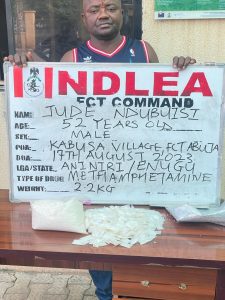 NDLEA
FCT COMMAND
NAME: JUDE NDUBUISI
AGE: 52 YEARS OLD
SEX: MALE
POA: KABUSA VILLAGE, FCT ABUJA
DOA: 17TH AUGUST 2023
LGA/STATE: ANINIRI / ENUGU
TYPE OF DRUG: METHAMPHETAMINE
WEIGHT: 2.2KG